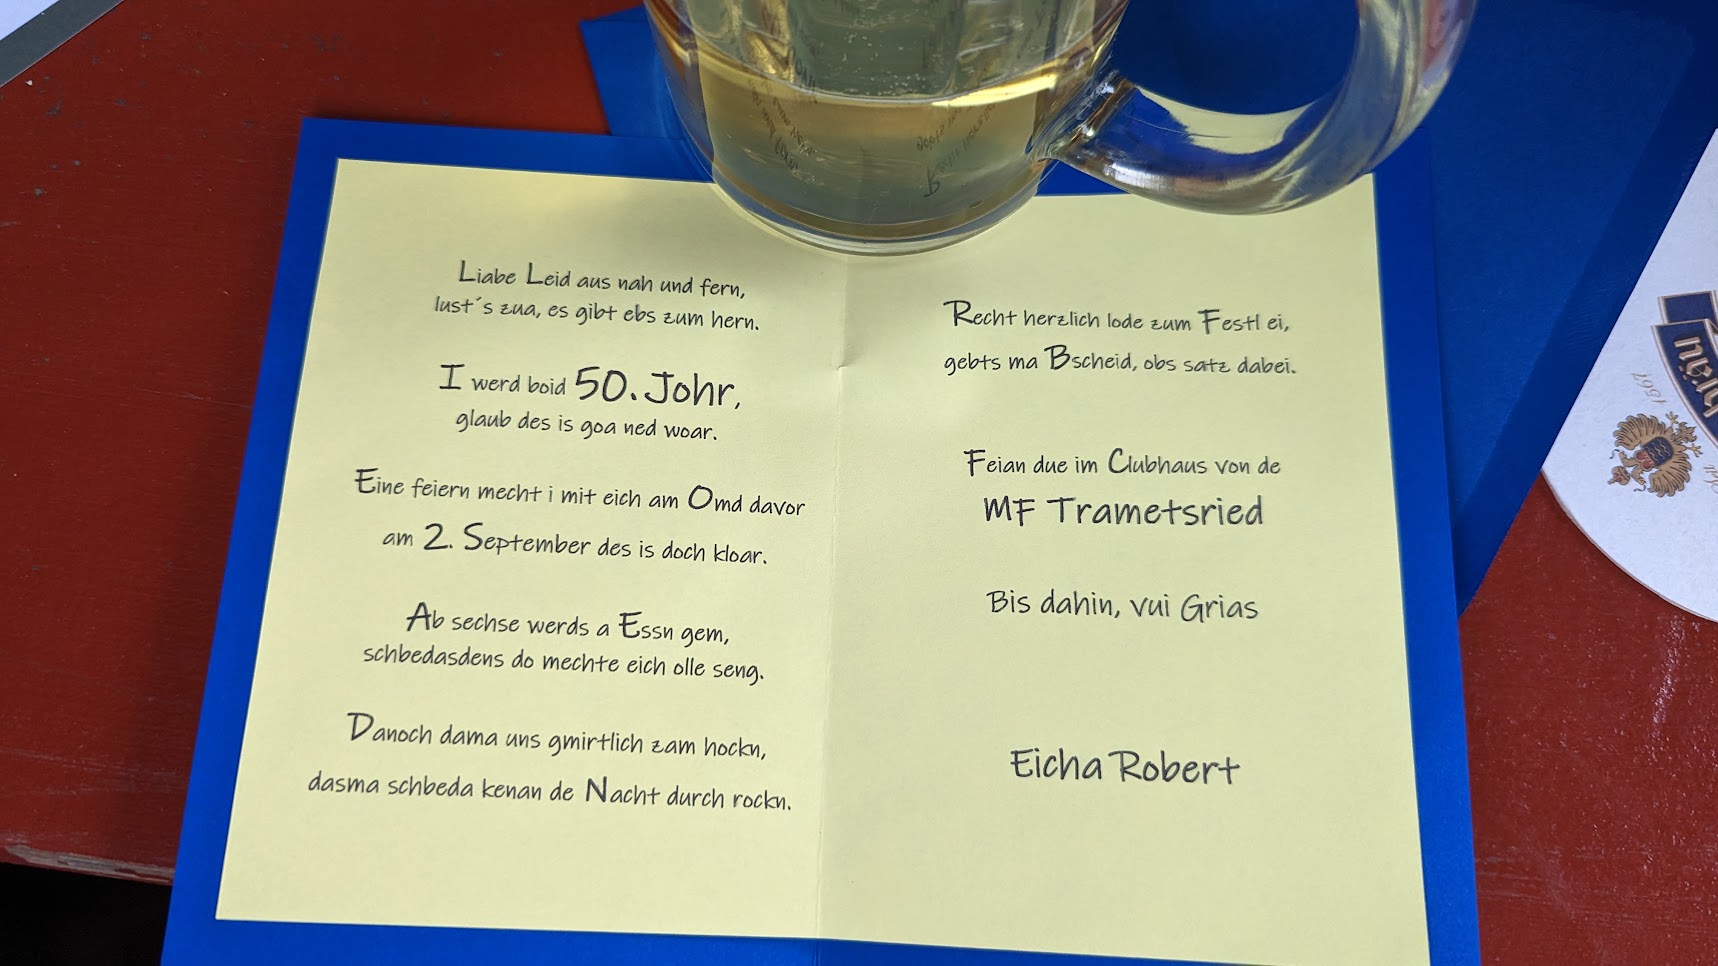 Liabe Leid aus nah und fern,
lust´s zua, es gibt ebs zum hern.
I werd boid 50. Johr,
glaub des is goa ned woar.
Eine feiern mecht i mit eich am Omd davor
am 2. September des is doch kloar.
Ab sechse werds a Essn gem,
schbedasdens do mechte eich olle seng.
Danoch dama uns gmirtlich zam hockn,
dasma schbeda kenan de Nacht durch rockn.
Recht herzlich lode zum Festl ei,
gebts ma Bscheid, obs satz dabei.
Feian due im Clubhaus von de
MF Trametsried
Bis dahin, vui Grias
Eicha Robert
1567